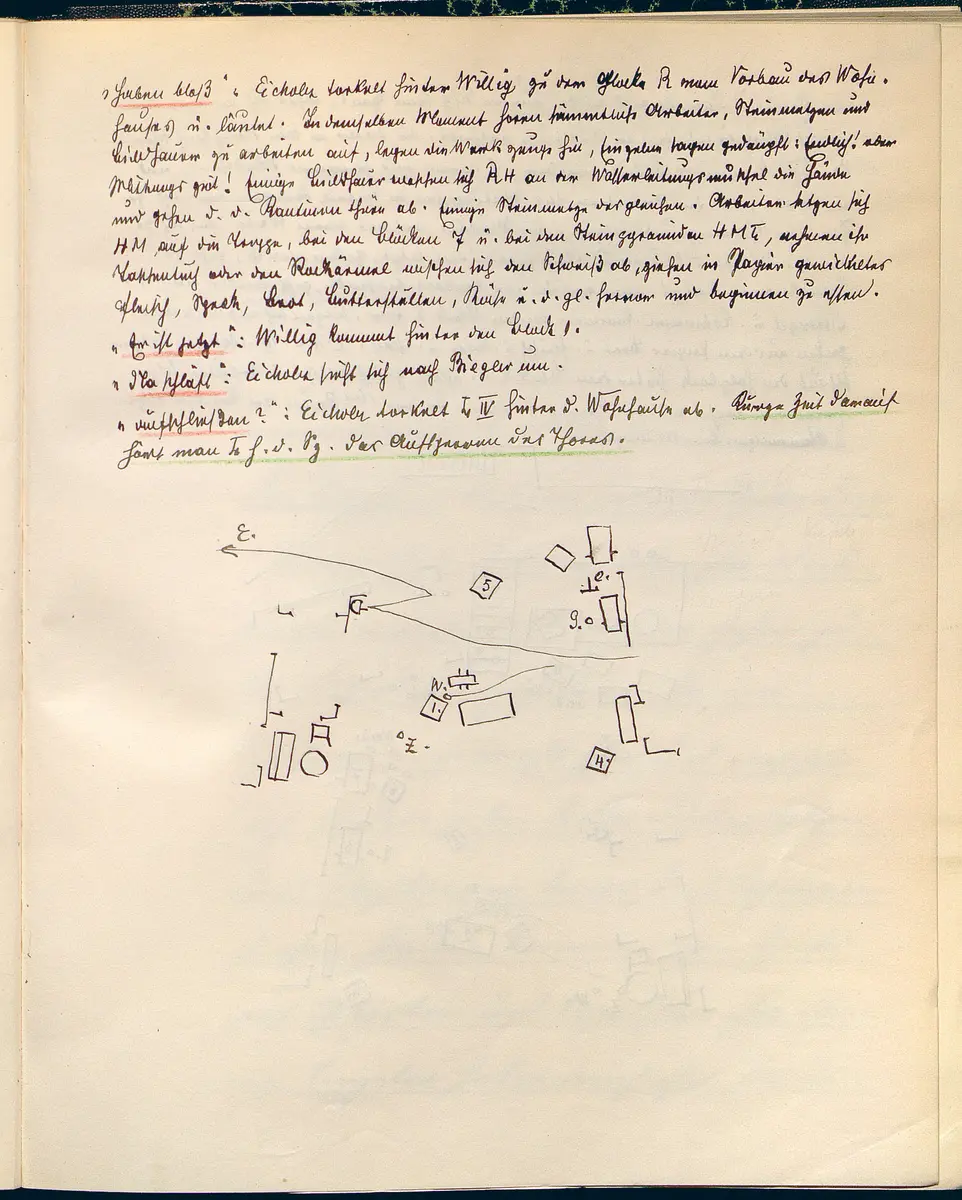 „haben bloß“: Eicholz torkelt hinter Willig zu der Glocke R vom Vorbau des Wohn-
hauses u. läutet. In demselben Moment hören sämmtliche Arbeiter, Steinmetzen und
Bildhauer zu arbeiten auf, legen die Werkzeuge hin, Einzelne sagen gedämpft: Endlich! oder
Mittagszeit! Einige Bildhauer waschen sich RH an der Wasserleitungsmuschel die Hände
und gehen d. d. Kantinenthüre ab. Einige Steinmetze desgleichen. Arbeiter setzen sich
HM auf die Treppe, bei den Blöcken 7 u. bei den Steinpyramiden HML, nehmen ihr
Taschentuch oder den Rockärmel wischen sich den Schweiß ab, ziehen in Papier gewickeltes
Fleisch, Speck, Brot, Butterstullen, Käse u. d. gl. hervor und beginnen zu essen.
„Er ist jetzt“: Willig kommt hinter den Block 1.
„Na schläft“: Eicholz sieht sich nach Biegler um.
„aufschließen?“: Eicholz torkelt L IV hinter d. Wohnhause ab. Kurze Zeit darauf
hört man L h. d. Sz. das Aufsperren des Thores.
E.
5
e.
g.
W.
1.
Z.
4.